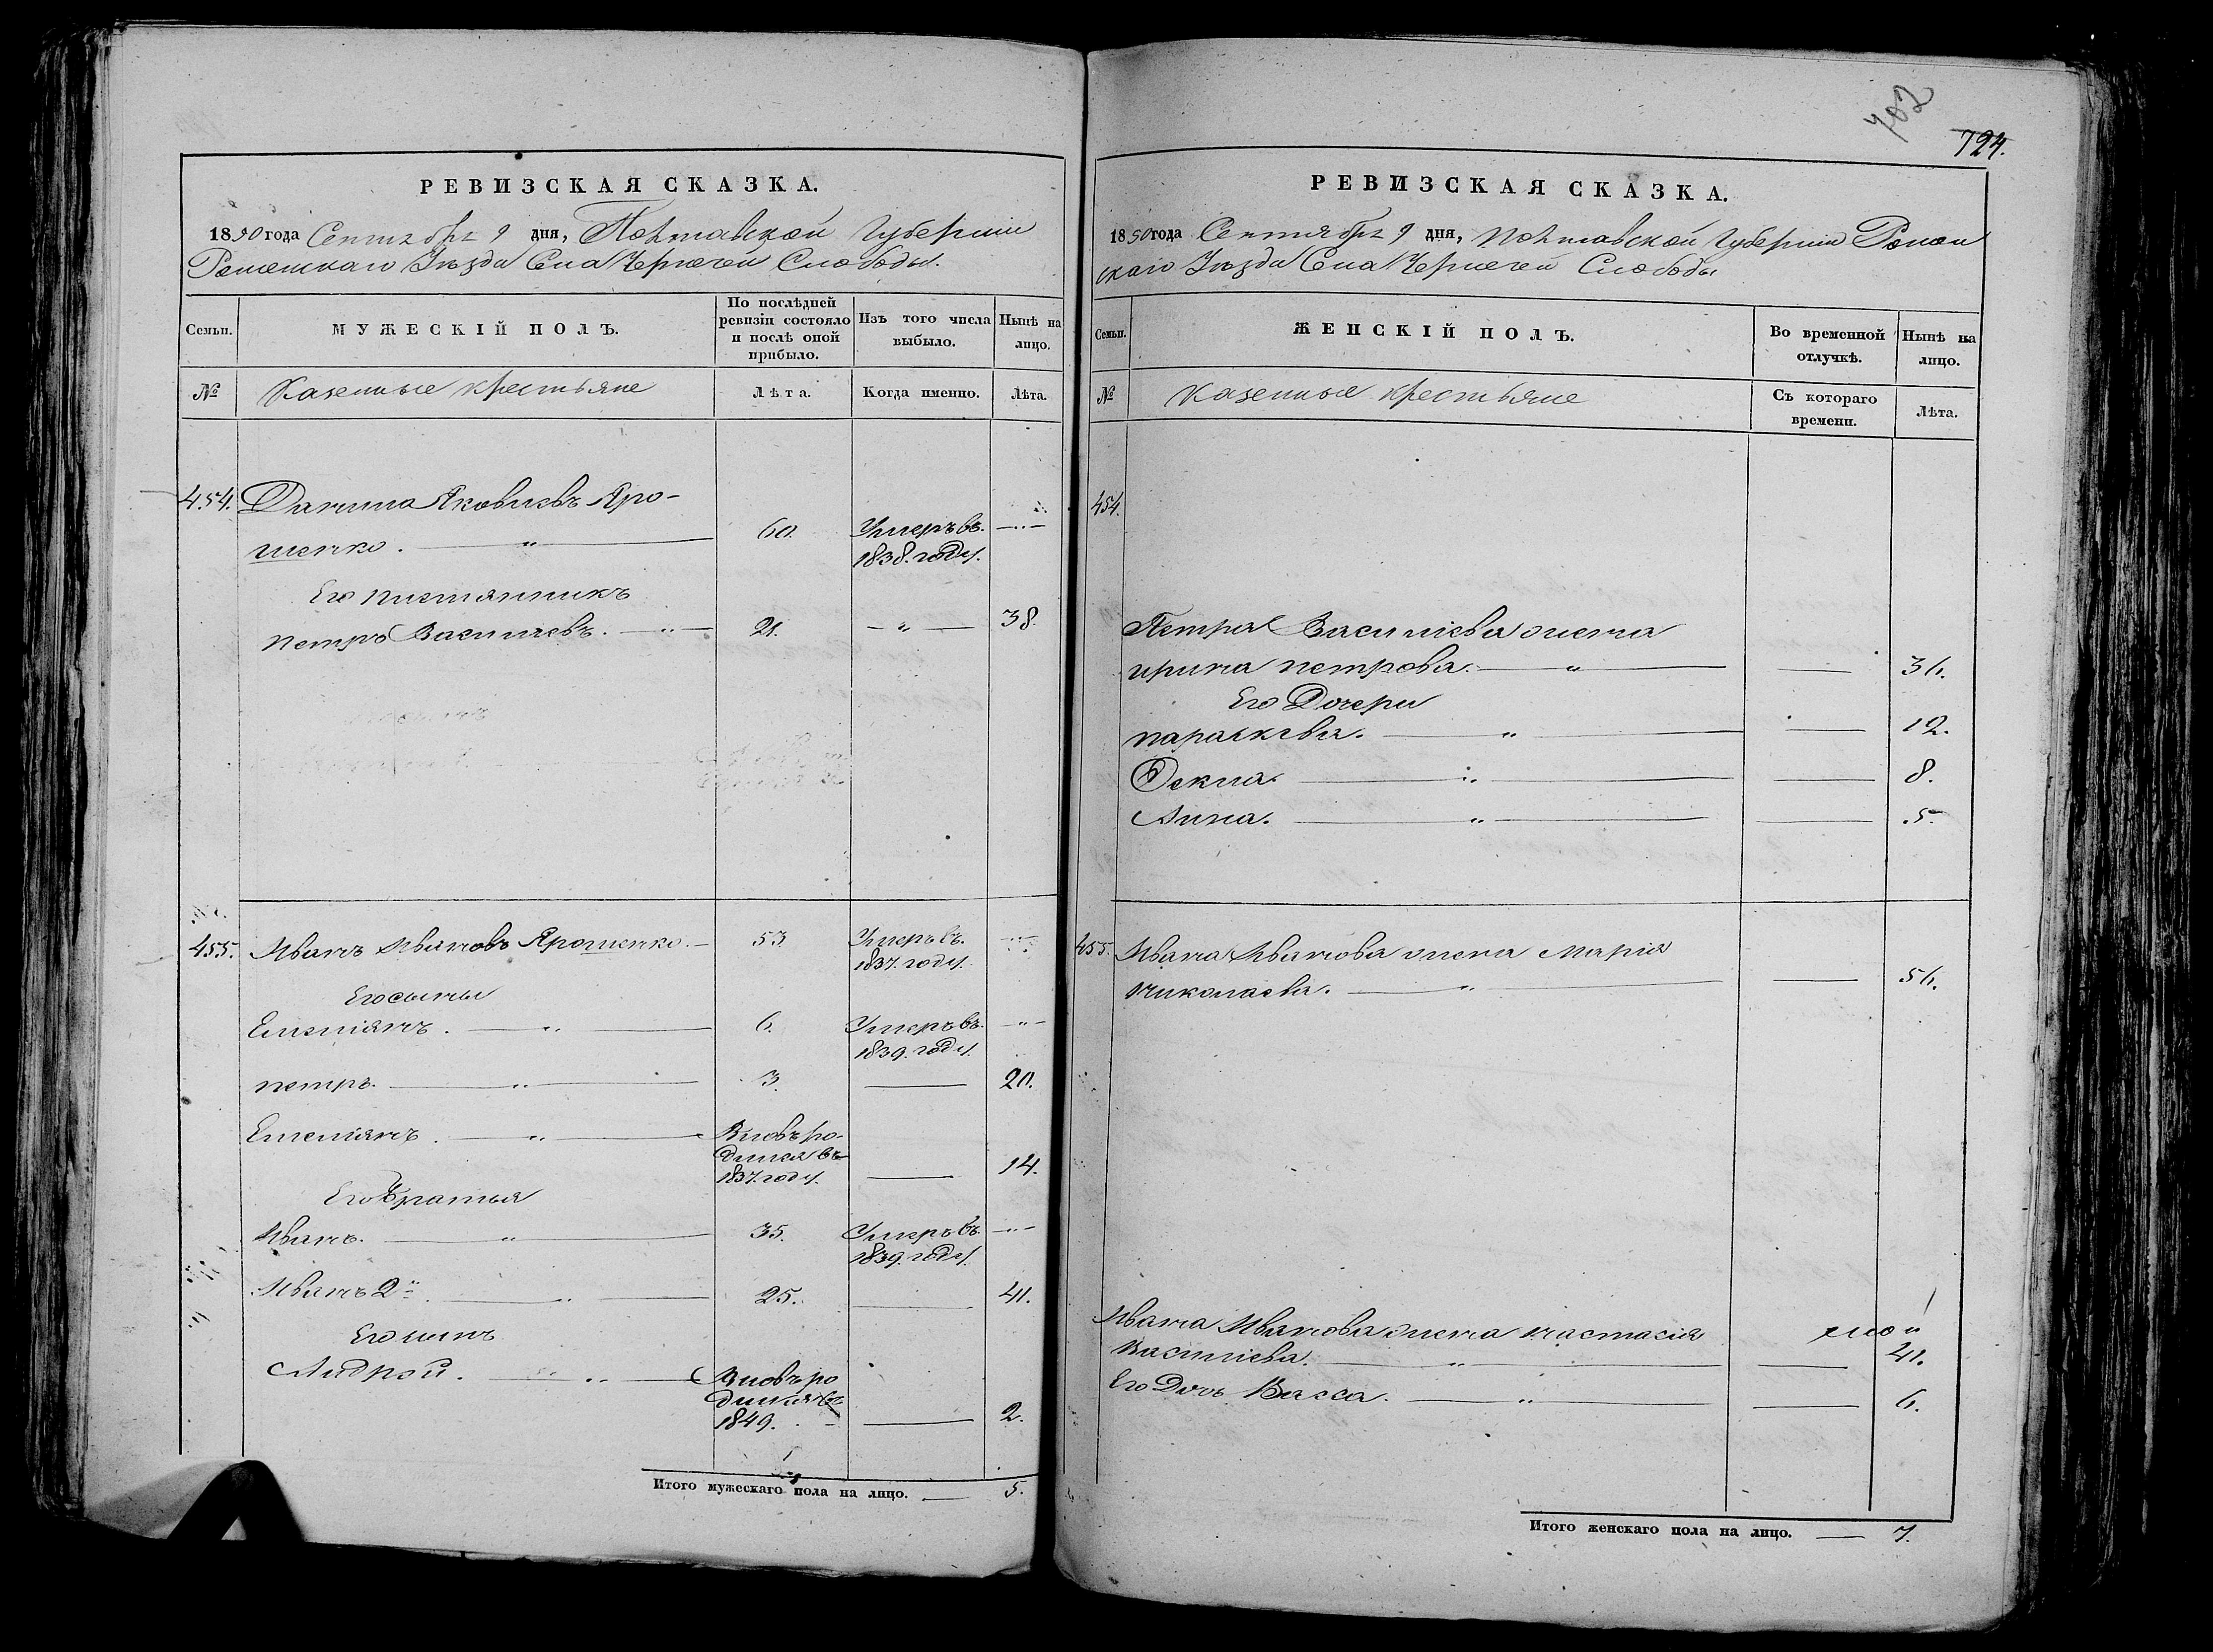 РЕВИЗСКАЯ СКАЗКА.
1850 года Сентября 9 дня, Полтавской Губернии
Роменскаго Уѣзда Села Чернечей Слободы.
Семьи.
МУЖЕСКІЙ ПОЛЪ.
По послѣдней
ревизіи состояло
и послѣ оной
прибыло.
Изъ того числа
выбыло.
Нынѣ на
лицо.
№
Казенные крестьяне
Лѣта.
Когда именно.
Лѣта.
454. Данила Яковлевъ Яро-
шенко. 60. Умеръ въ
1838. году.
Его племянникъ
петръ Васильевъ. 21. 38.
455. Иванъ Ивановъ Ярошенко. 53. Умеръ въ
1837. году.
Его сыны
Емеліянъ. 6. Умеръ въ
1839. году.
петръ. 3. 20.
Емеліянъ. Вновь ро-
дился въ
1837. году. 14.
Его братья
Иванъ. 35. Умеръ въ
1839. году.
Иванъ 2й 25. 41.
Его сынъ
Андрей. Вновь ро
дился въ
1849. 2.
Итого мужескаго пола на лицо. 5.
702
724.
РЕВИЗСКАЯ СКАЗКА.
1850 года Сентября 9 дня, Полтавской Губерніи Ромен
скаго Уѣзда Села Чернечей Слободы
Семьи.
ЖЕНСКІЙ ПОЛЪ.
Во временной
отлучкѣ.
Нынѣ на
лицо.
№
Казенные крестьяне
Съ котораго
времени.
Лѣта.
454.
Петра Василіева жена
ирина петрова. 36.
Его Дочери
параскева. 12.
Фекла. 8.
Анна. 5.
455. Ивана Иванова жена Марія
николаева. 56.
Ивана Иванова жена настасія
Василіева. 41.
Его Дочь Васса. 6.
Итого женскаго пола на лицо. 7.